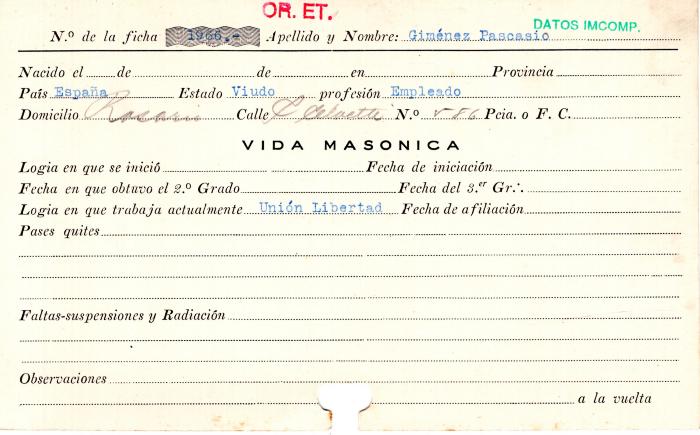 OR. ET.
DATOS IMCOMP.
N.º de la ficha 1966.- Apellido y Nombre: Giménez Pascasio
Nacido el de de en Provincia
País España Estado Viudo profesión Empleado
Domicilio Rosario Calle N.º 886 Pcia. o F. C.
VIDA MASONICA
Logia en que se inició Fecha de iniciación
Fecha en que obtuvo el 2.º Grado Fecha del 3.er Gr∴
Logia en que trabaja actualmente Unión Libertad Fecha de afiliación
Pases quites
Faltas-suspensiones y Radiación
Observaciones
a la vuelta